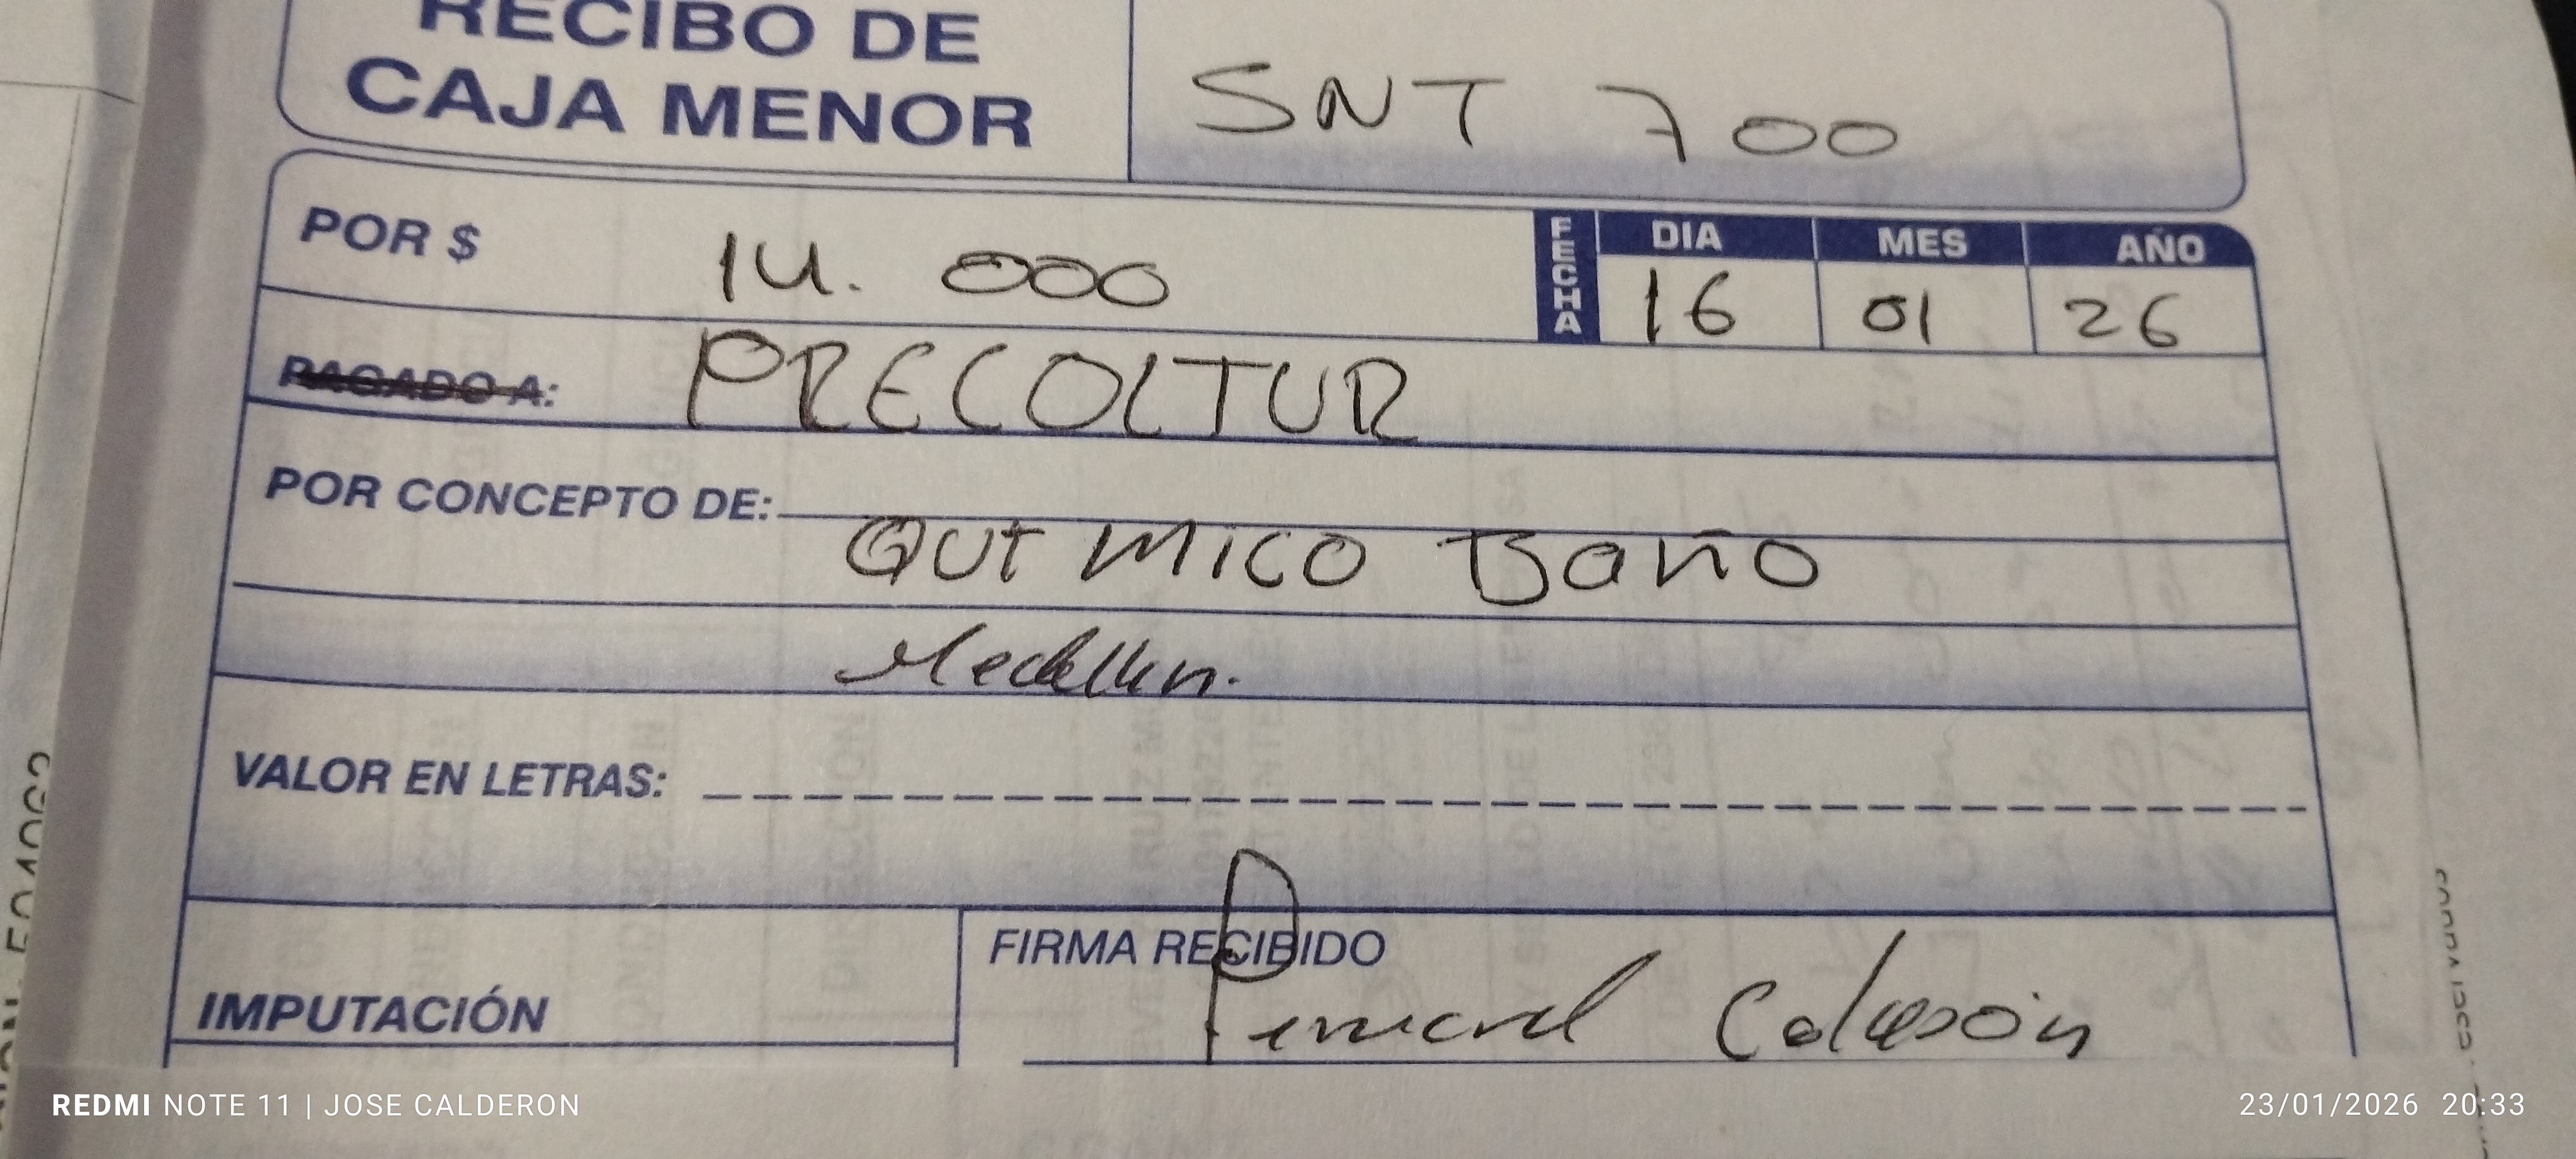 RECIBO DE
CAJA MENOR
SNT 700
POR $ 14.000
FECHA
DIA MES AÑO
16 01 26
PAGADO A: PRECOLTUR
POR CONCEPTO DE:
QUIMICO Baño
Medellin.
VALOR EN LETRAS:
IMPUTACIÓN
FIRMA RECIBIDO
Calderón
REDMI NOTE 11 | JOSE CALDERON
23/01/2026 20:33